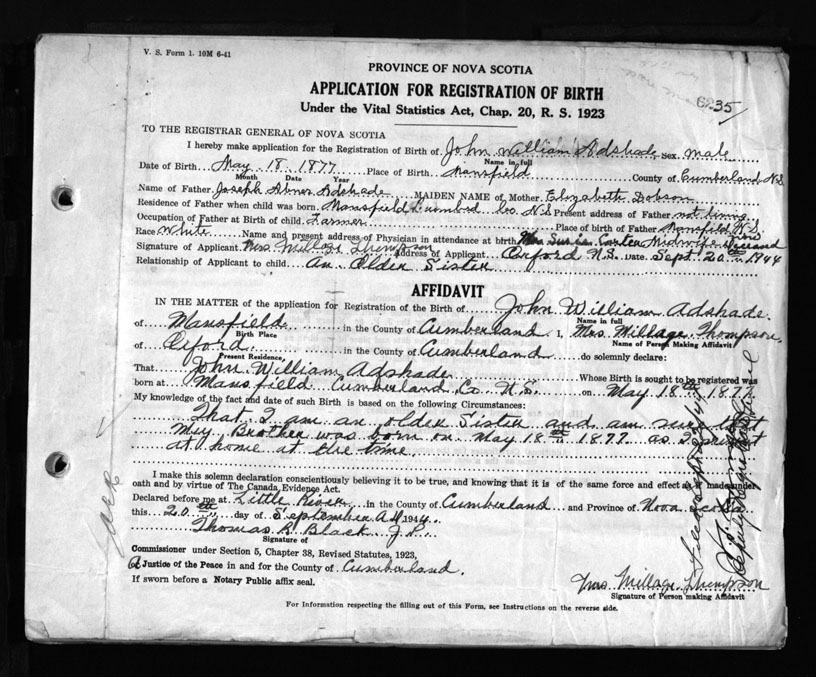 V. S. Form 1. 10M 6-41
PROVINCE OF NOVA SCOTIA
APPLICATION FOR REGISTRATION OF BIRTH
Under the Vital Statistics Act, Chap. 20, R. S. 1923
6235
TO THE REGISTRAR GENERAL OF NOVA SCOTIA
I hereby make application for the Registration of Birth of John William Adshade sex male
Name in full
Date of Birth May 18 1877 Place of Birth Mansfield County of Cumberland N.S
Month Date Year
Name of Father Joseph Abner Adshade MAIDEN NAME of Mother Elizabeth Dobson
Residence of Father when child was born Mansfield Cumbrld Co. N.S Present address of Father not living
Occupation of Father at Birth of child Farmer Place of birth of Father Mansfield N.S
Race White Name and present address of Physician in attendance at birth Mrs Carter Midwife deceased
Signature of Applicant Mrs Millage Thompson Address of Applicant Oxford N.S. Date Sept. 20th 1944
Relationship of Applicant to child An Older Sister
AFFIDAVIT
IN THE MATTER of the application for Registration of the Birth of John William Adshade.
Name in full
of Mansfield in the County of Cumberland I, Mrs. Millage Thompson
Birth Place Name of Person Making Affidavit
of Oxford in the County of Cumberland do solemnly declare:
Present Residence
That John William Adshade Whose Birth is sought to be registered was
born at Mansfield Cumberland Co N.S. on May 18th 1877
My knowledge of the fact and date of such Birth is based on the following Circumstances:
That I am an older Sister and am very that
My Brother was born on May 18th 1877 as I present
at home at the time.
I make this solemn declaration conscientiously believing it to be true, and knowing that it is of the same force and effect as if made under
oath and by virtue of The Canada Evidence Act.
Declared before me at Little River in the County of Cumberland and Province of Nova Scotia
this 20th day of September A.D 1944.
Thomas R. Black J.P.
Signature of
Commissioner under Section 5, Chapter 38, Revised Statutes, 1923,
A Justice of the Peace in and for the County of Cumberland.
If sworn before a Notary Public affix seal.
Mrs. Millage Thompson
Signature of Person making Affidavit
For Information respecting the filling out of this Form, see Instructions on the reverse side.